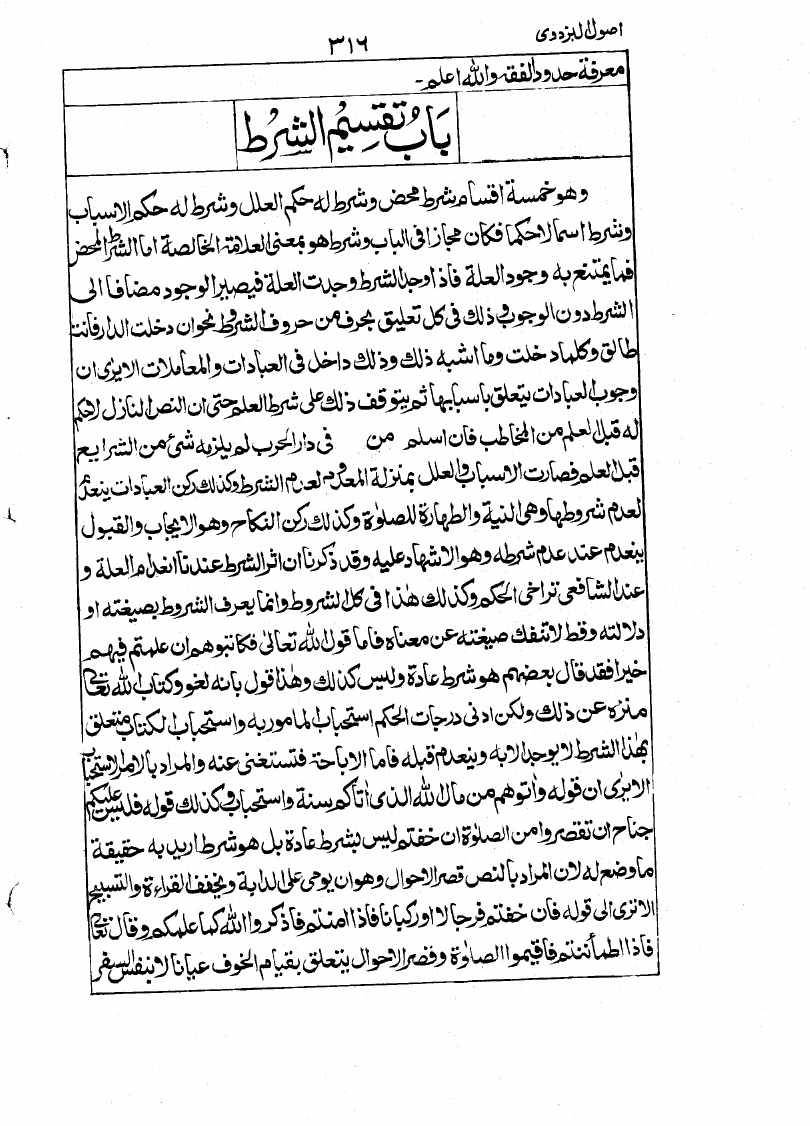 اصول البزدوی
۳۱۶
معرفة حدود الفقه والله اعلم۔
بَابُ تقسیمُ الشرط
وهو خمسة اقسام شرط محض وشرط له حکم العلل وشرط له حکم الاسباب
وشرط اسما لاحکما فکان مجازا فی الباب وشرط هو بمعنی العلاقة الخالصة اما الشرط المحض
فما یمتنع به وجود العلة فاذا وجد الشرط وجدت العلة فیصیر الوجود مضافا الی
الشرط دون الوجوب وذلك فی کل تعلیق بحرف من حروف الشرط نحو ان دخلت الدار فانت
طالق وکلما دخلت وما اشبه ذلك وذلك داخل فی العبادات والمعاملات الایرٰی ان
وجوب العبادات یتعلق باسبابها ثم یتوقف ذلك علی شرط العلم حتی ان النص النازل لاحکم
له قبل العلم من المخاطب فان اسلم من فی دار الحرب لم یلزمه شئ من الشرایع
قبل العلم فصارت الاسباب والعلل بمنزلة المعدوم لعدم الشرط وکذلك رکن العبادات ینعدم
لعدم شروطها وهی النیة والطهارة للصلوٰة وکذلك رکن النکاح وهو الایجاب والقبول
ینعدم عند عدم شرطه وهو الاشهاد علیه وقد ذکرنا ان اثر الشرط عندنا انعدام العلة و
عند الشافعی تراخی الحکم وکذلك هٰذا فی کل الشروط وانما یعرف الشروط بصیغته او
دلالته وقط لاتنفك صیغته عن معناه فاما قول الله تعالیٰ فکاتبوهم ان علمتم فیهم
خیرا فقد قال بعضهم هو شرط عادة ولیس کذلك وهٰذا قول بانه لغو وکتاب الله تعالٰی
منزه عن ذلك ولکن ادنی درجات الحکم استحباب المامور به واستحباب الکتاب متعلق
بهٰذا الشرط لا یوجد الا به وینعدم قبله فاما الاباحة فتستغنی عنه والمراد بالامر الاستحباب
الایرٰی ان قوله واٰتوهم من مال الله الذی اٰتاکم سنة واستحباب وکذلك قوله فلیس علیکم
جناح ان تقصروا من الصلوٰة ان خفتم لیس بشرط عادة بل هو شرط ارید به حقیقة
ما وضع له لان المراد بالنص قصر الاحوال وهو ان یومی علی الدابة ویخفف القراءة والتسبیح
الاترٰی الی قوله فان خفتم فرجالا او رکبانا فاذا امنتم فاذکروا الله کما علمکم وقال تعالٰی
فاذا اطمأننتم فاقیموا الصلوٰة وقصر الاحوال یتعلق بقیام الخوف عیانا لا بنفس السفر